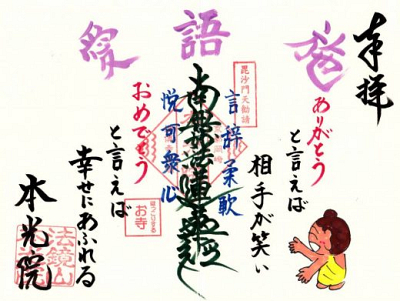 奉拝
語
ありがとう
と言えば
相手が笑い
毘沙門天勧請
言辞柔軟
南無妙法蓮華経
悦可衆心
お寺
おめでとう
と言えば
幸せにあふれる
本光院
法鏡山